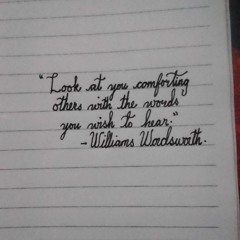 "Look at you comforting
others with the words
you wish to hear."
- Williams Wordsworth.